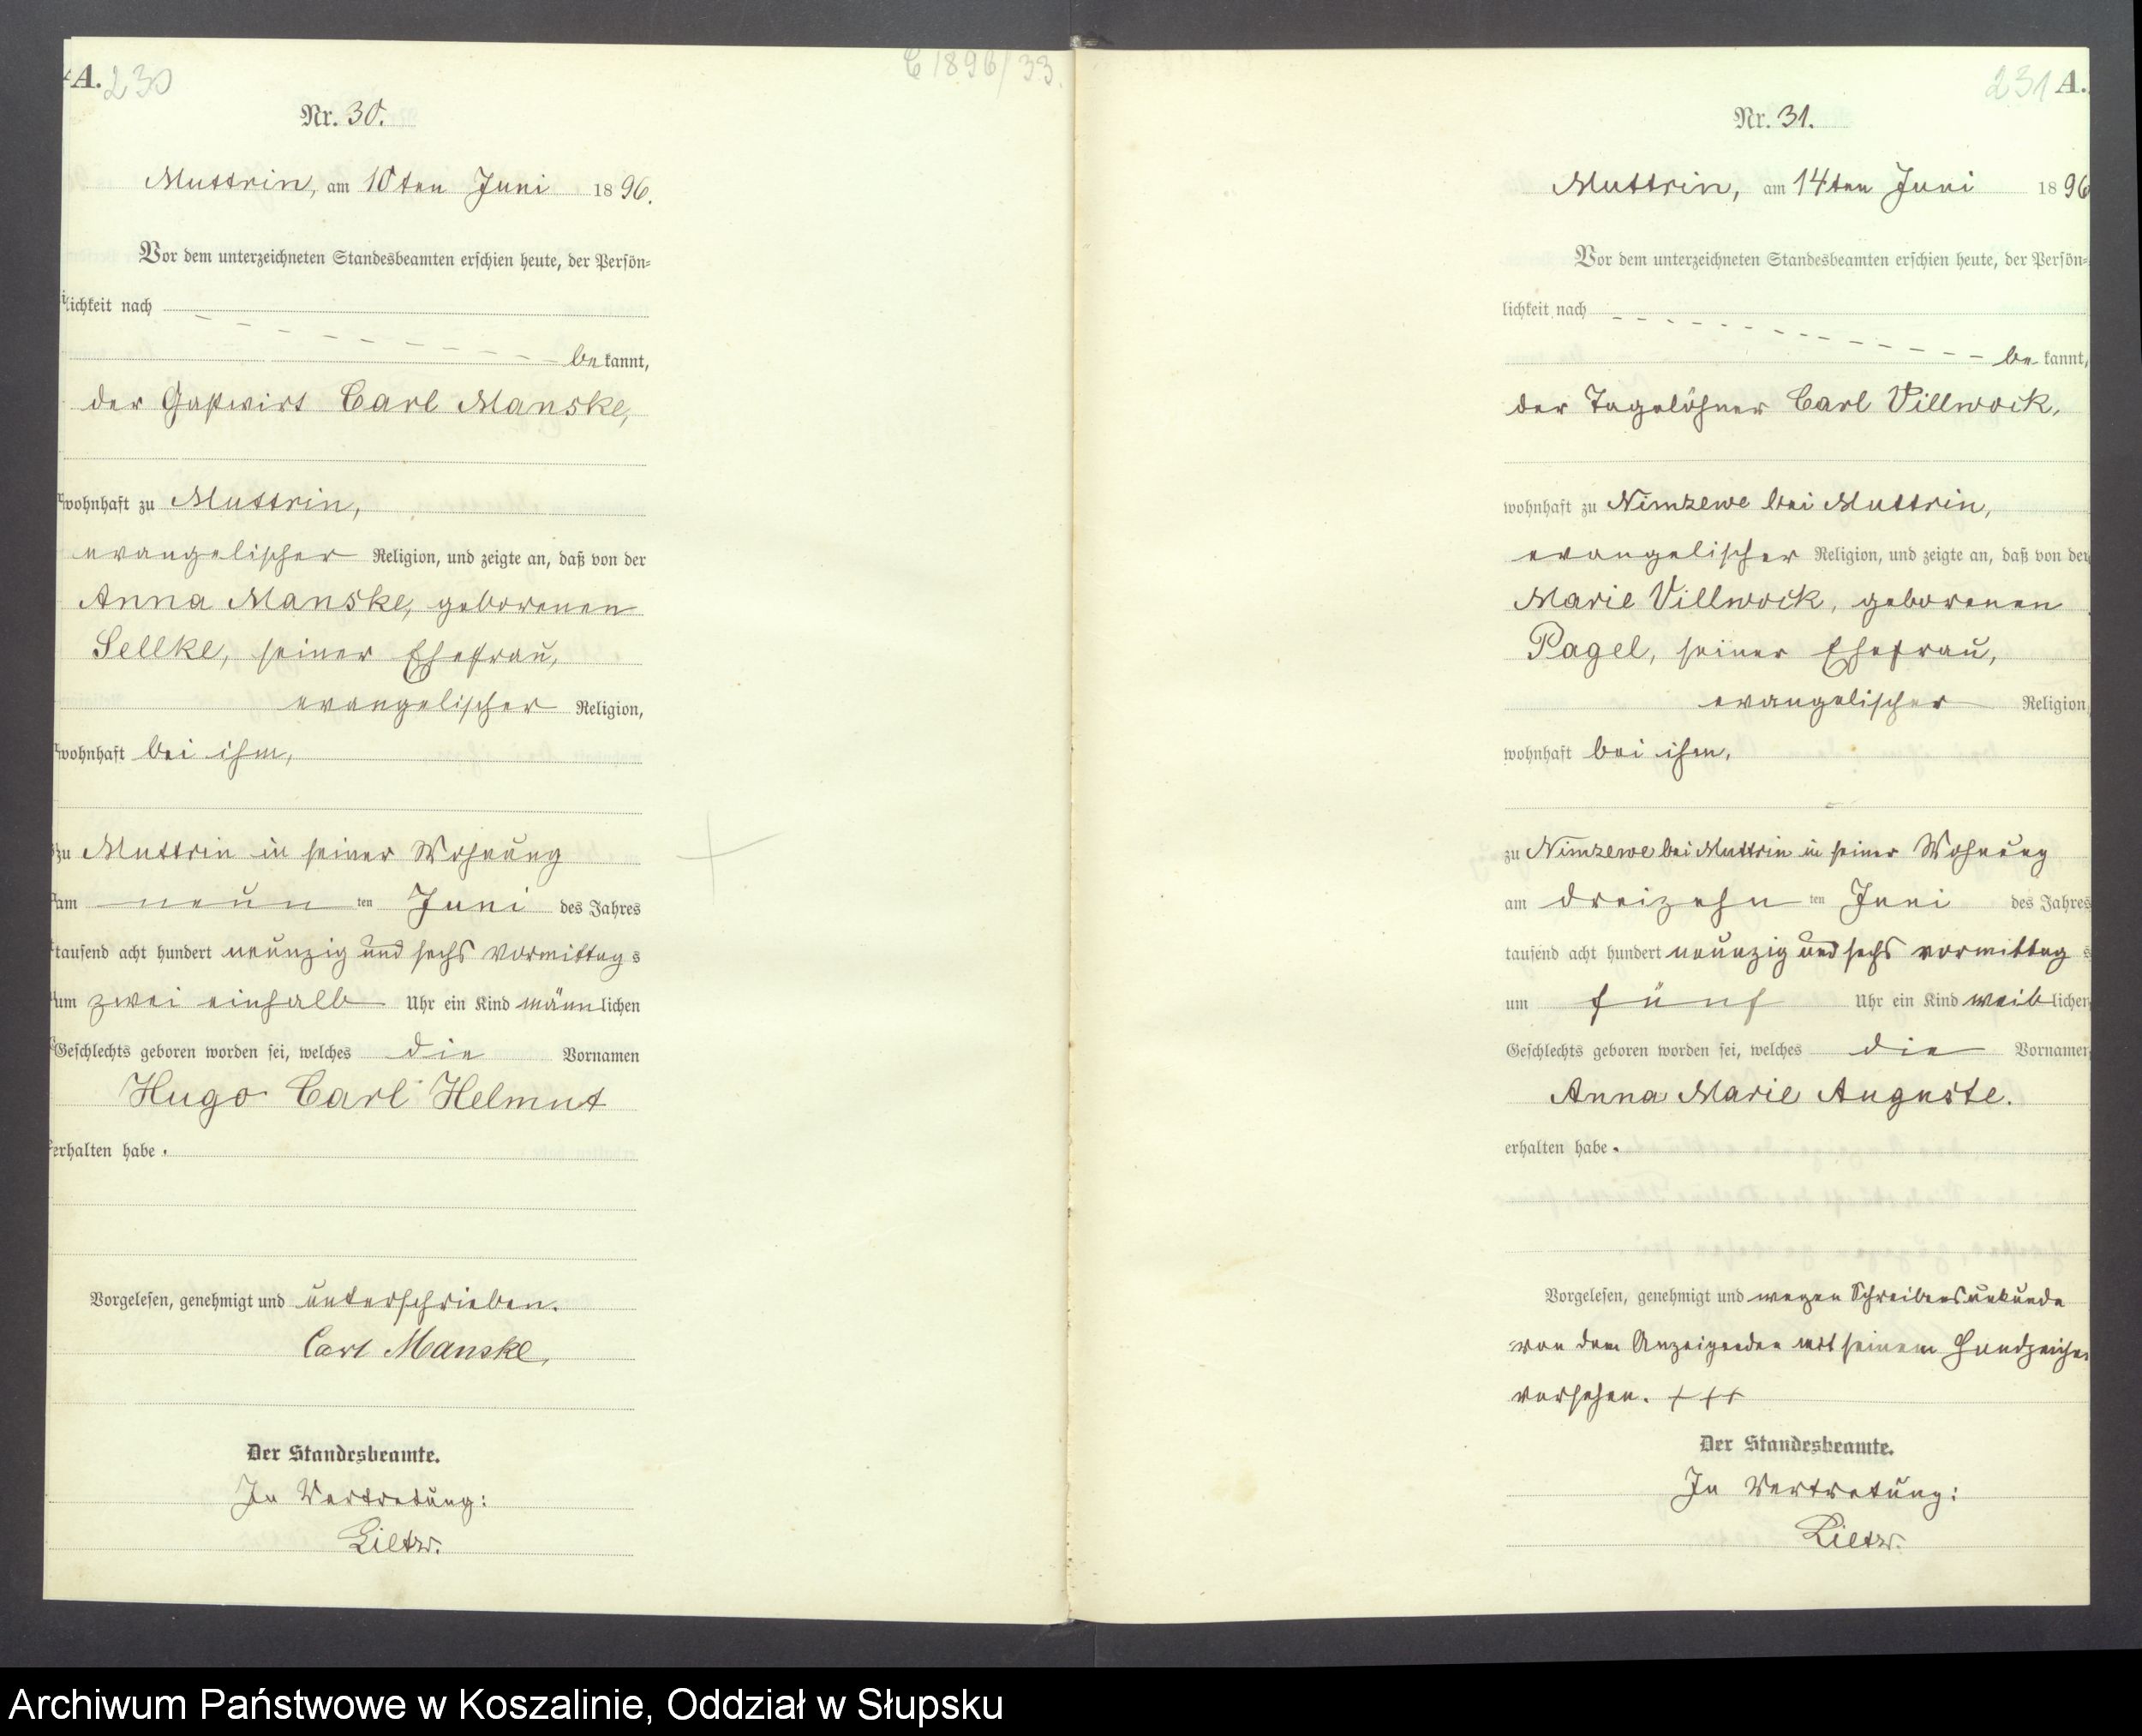 A. 230
C 1896/33.
Nr. 30.
Muttrin, am 10ten Juni 1896.
Vor dem unterzeichneten Standesbeamten erschien heute, der Persön-
lichkeit nach
bekannt,
der Gastwirt Carl Manske,
wohnhaft zu Muttrin,
evangelischer Religion, und zeigte an, daß von der
Anna Manske, geborenen
Sellke, seiner Ehefrau,
evangelischer Religion,
wohnhaft bei ihm,
zu Muttrin in seiner Wohnung
am neun ten Juni des Jahres
tausend acht hundert neunzig und sechs Vormittags
um zwei einhalb Uhr ein Kind männlichen
Geschlechts geboren worden sei, welches die Vornamen
Hugo Carl Helmut
erhalten habe.
Vorgelesen, genehmigt und unterschrieben.
Carl Manske,
Der Standesbeamte.
In Vertretung:
Lietz.
231 A.
Nr. 31.
Muttrin, am 14ten Juni 1896
Vor dem unterzeichneten Standesbeamten erschien heute, der Persön-
lichkeit nach
bekannt,
der Tagelöhner Carl Villwock,
wohnhaft zu Nimzewe bei Muttrin,
evangelischer Religion, und zeigte an, daß von der
Marie Villwock, geborenen
Pagel, seiner Ehefrau,
evangelischer Religion,
wohnhaft bei ihm,
zu Nimzewe bei Muttrin in seiner Wohnung
am dreizehn ten Juni des Jahres
tausend acht hundert neunzig und sechs vormittags
um fünf Uhr ein Kind weiblichen
Geschlechts geboren worden sei, welches die Vornamen
Anna Marie Auguste.
erhalten habe.
Vorgelesen, genehmigt und wegen Schreibensunkunde
von dem Anzeigenden mit seinem Handzeichen
versehen. +++
Der Standesbeamte.
In Vertretung:
Lietz.
Archiwum Państwowe w Koszalinie, Oddział w Słupsku